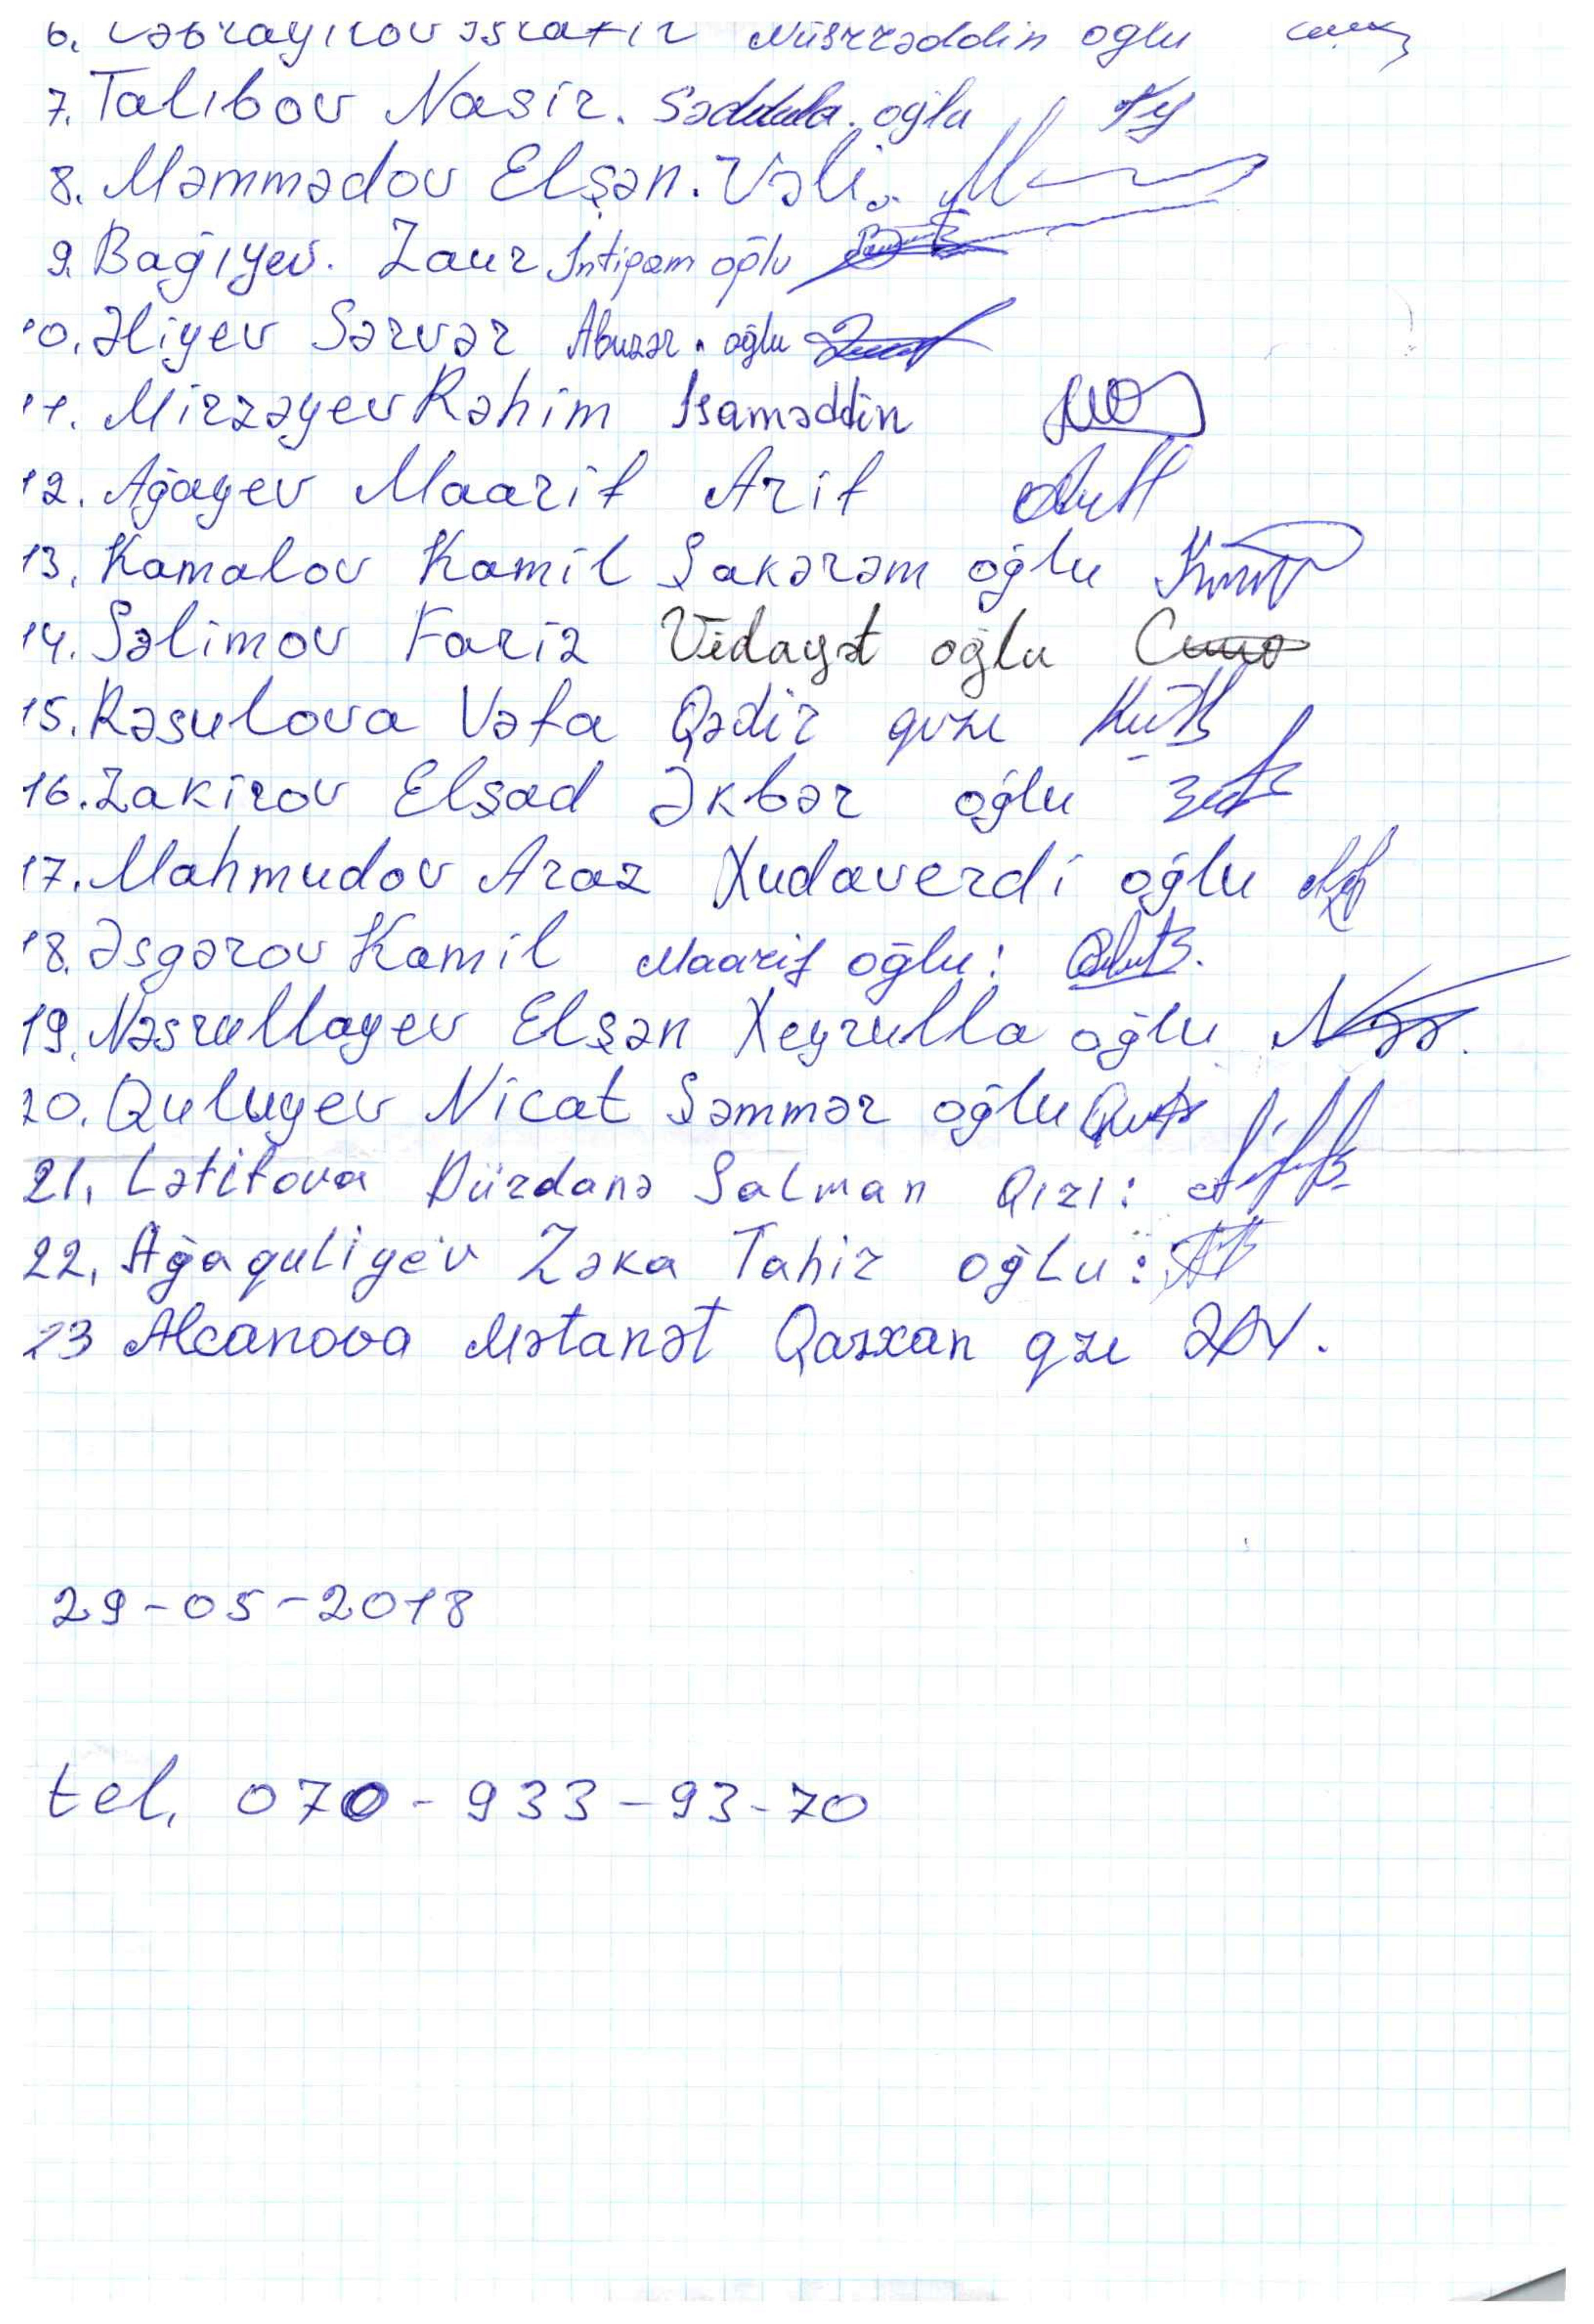 6. Cəbrayılov İsrafil Nüsrrəddin oğlu
7. Talıbov Nasir. Səddulla. oğlu
8. Məmmədov Elşən. Vəli o.
9. Bağıyev. Zaur İntiqam oğlu
10. Əliyev Sərvər Abuzər. oğlu
11. Mirzəyev Rəhim Isaməddin
12. Ağayev Maarif Arif
13. Kamalov Kamil Şakərəm oğlu
14. Səlimov Fariz Vidayət oğlu
15. Rəsulova Vəfa Qədir qızı
16. Zakirov Elşad Əkbər oğlu
17. Mahmudov Araz Xudaverdi oğlu
18. Əsgərov Kamil Maarif oğlu:
19. Nəsrullayev Elşən Xeyrulla oğlu
20. Quluyev Nicat Səmmər oğlu
21. Lətifova Dürdanə Salman Qızı:
22. Ağaquliyev Zəka Tahir oğlu:
23 Alcanova Mətanət Qarxan qzı
29-05-2018
tel. 070-933-93-70